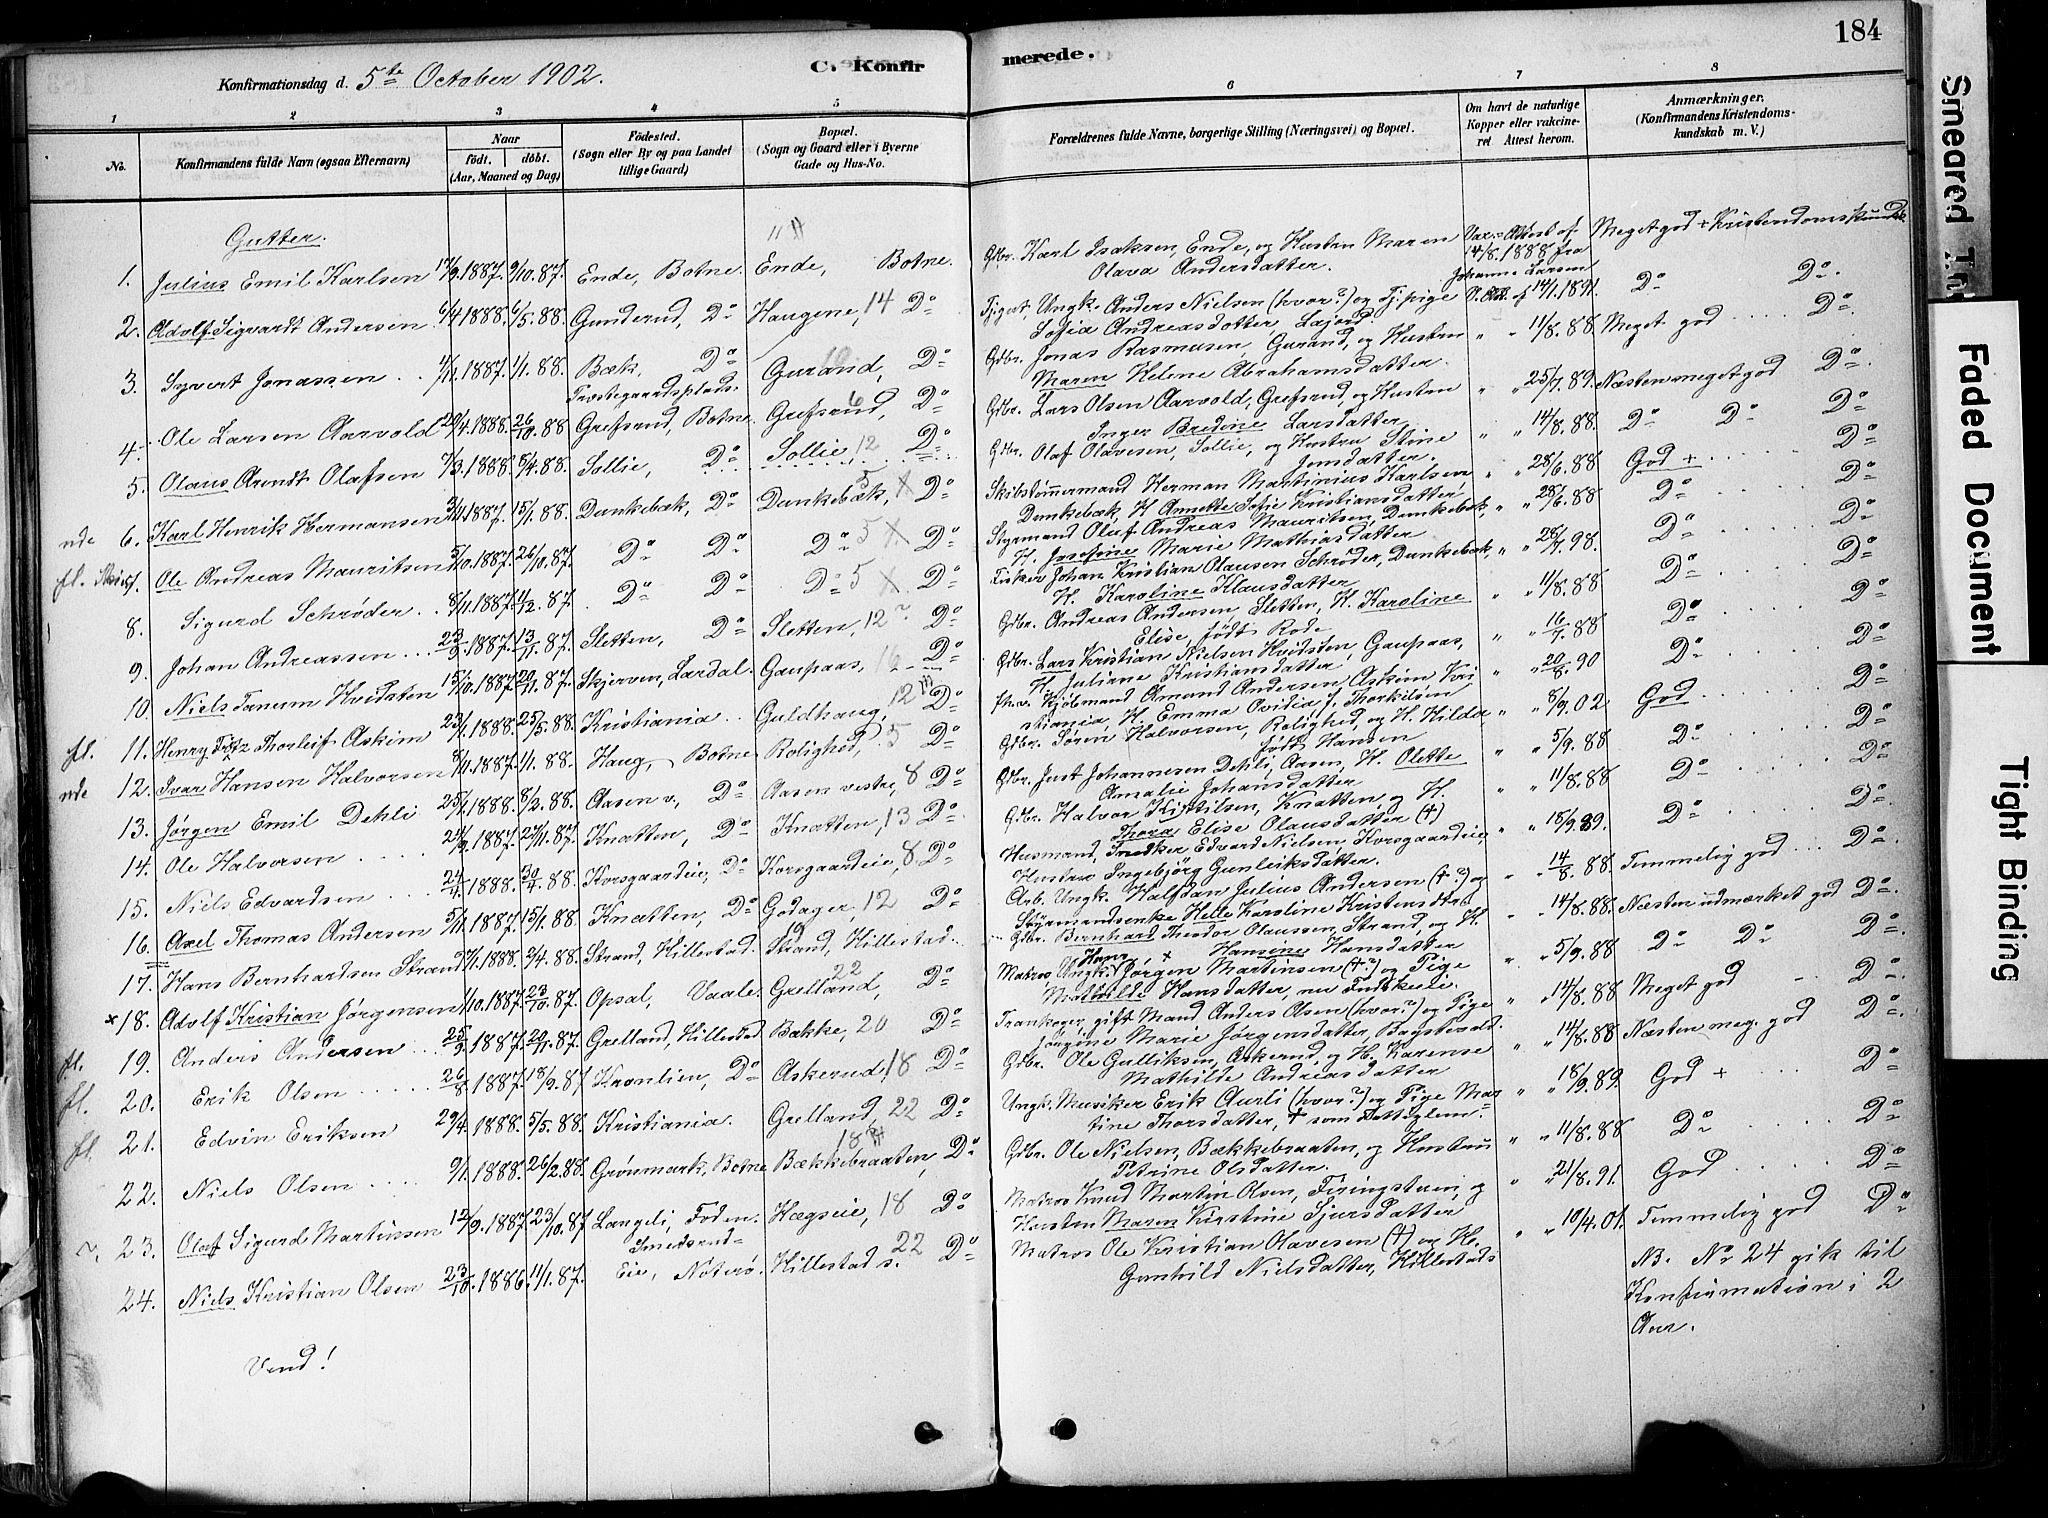 184
Konfirmationsdag d. 5te October 1902.
C. Konfirmerede.
1 2 3 4 5 6 7 8
No.
Konfirmandens fulde Navn (ogsaa Efternavn)
Naar
født. døbt.
(Aar, Maaned og Dag)
Fødested.
(Sogn eller By og paa Landet
tillige Gaard)
Bopæl.
(Sogn og Gaard eller i Byerne
Gade og Hus-No.
Forældrenes fulde Navne, borgerlige Stilling (Næringsvei) og Bopæl.
Om havt de naturlige
Kopper eller vakcine-
ret Attest herom.
Anmærkninger.
(Konfirmandens Kristendoms-
kundskab m. V.)
Gutter.
1. Julius Emil Karlsen 17/9.1887. 9/10.87. Ende, Botne. Ende, Botne. Gdbr. Karl Isaksen, Ende, og Hustru Maren
Olava Andersdatter. Vax.-Attest af 14/8.1888 fra Johanne Larsen Meget god + Kristendomskundsk.
2. Adolf Sigvardt Andersen 6/4.1888. 6/5.88. Gunderud, Do Haugene, 14 Do Tjgut, Ungk. Anders Nielsen (hvor?) og Tj.pige
Sofia Andreasdatter, Lajord. 14/1.1891. Do Do.
3. Syvert Jonassen 1/11.1887. 1/1.88. Bæk, Do Gurand, Do Gdbr. Jonas Rasmusen, Gurand, og Hustru
Maren Helene Abrahamsdatter. " " 11/8.88. Meget god Do.
4. Ole Larsen Aarvold 20/4.1888. 26/10.88 Præstegaardsplads. Grefsrud, Botne Grefsrud, 6 Do Gdbr. Lars Olsen Aarvold, Grefsrud, og Hustru
Inger Bredine Larsdatter " " 25/7.89. Næsten meget god Do.
5. Olaus Arendt Olafsen 7/3.1888. 5/4.88. Sollie, Do Sollie 12 Do Gdbr. Olaf Olavesen, Sollie, og Hustru Stine
Jonsdatter. " " 14/8.88. Do Do Do
nde 6. Karl Henrik Hermansen 3/11.1887. 15/1.88. Dunkebæk, Do Dunkebæk, 5 Do Skibstømmermand Herman Martinius Karlsen
Dunkebæk, H. Annette Sofie Kristiansdatter, " " 28/6.88 God + Do
fl. 7. Ole Andreas Mauritsen 5/10.1887. 26/10.87. Do Do Do 5 Do Styrmand Oluf Andreas Mauritsen, Dunkebæk,
H. Josefine Marie Mathiasdatter " " 28/6.88 Do Do
8. Sigurd Schrøder 8/11.1887. 11/12.87. Do Do Do 5 Do Fisker Johan Kristian Olausen Schrøder, Dunkebæk,
H. Karoline Klausdatter " " 28/7.98. Do Do
9. Johan Andreassen 23/9.1887. 13/11.87. Sletten, Do Sletten, 12 Do Gdbr. Andreas Andersen Sletten, H. Karoline
Elise, født Rode " " 11/8.88 Do Do
10. Niels Tanum Hvidsten 15/10.1887. 20/11.87. Skjerven, Lardal. Gaupaas, 16 Do Gdbr. Lars Kristian Nielsen Hvidsten, Gaupaas,
H. Juliane Kristiansdatter " " 16/7.88 Do Do
fl. 11. Henry Fritz Thorleif Askim 23/1.1888. 25/5.88. Kristiania. Guldhaug, 12 Do Kjøbmand Amand Andersen Askim Kri-
stiania, H. Emma Ovidia f. Thorkilsen " " 20/8.90 Do Do
nde 12. Ivar Hansen Halvorsen 8/11.1887. 1/1.88. Haug, Botne Rolighed, 5 Do Gdbr. Søren Halvorsen, Rolighed, og H. Hilda
født Hansen " " 8/9.02 God Do
13. Jørgen Emil Dehli 25/1.1888. 8/2.88. Aasen v, Do Aasen vestre, 8 Do Gdbr. Just Johannesen Dehli, Aasen, H. Olette
Amalie Johansdatter " " 5/9.88 Do Do
14. Ole Halvorsen 24/9.1887. 27/11.87. Knatten, Do Knatten, 13 Do Gdbr. Halvor Kittilsen, Knatten, og H.
Thora Elise Olausdatter (+) " " 11/8.88 Do Do
15. Niels Edvardsen 24/4.1888. 30/4.88. Korsgaardeie, Do Korsgaardeie, 8 Do Husmand, Snedker Edvard Nielsen, Korsgaardeie,
Hustru Ingebjørg Gunleiksdatter. " " 15/9.89. Do Do
16. Axel Thomas Andersen 5/11.1887. 15/1.88. Knatten, Do Godager, 12 Do Arb. Ungk. Halfdan Julius Andersen (+?) og
Styrmandsenke Helle Karoline Kristensdtr. " " 14/8.88 Temmelig god Do
17. Hans Bernhardsen Strand 7/1.1888. 2/4.88. Strand, Hillestad. Strand, Hillestad. Gdbr. Bernhard Theodor Olaussen, Strand, og H.
Hansine Hansdatter " " 14/8.88. Næsten udmærket god Do
x 18. Adolf Kristian Jørgensen 1/10.1887. 23/10.87. Opsal, Vaale. Grelland, 22 Do Matros, Ungk. Hans Jørgen Martinsen (+?) og Pige
Mathilde Hansdatter, nu Fuskeeie. " " 5/9.88 Do Do Do
fl. 19. Anders Andersen 25/9.1887. 20/11.87. Grelland, Hillestad. Bække, 20 Do Trankoger, gift Mand Anders Olsen (hvor?) og Pige
Jørgine Marie Jørgensdatter, Bagstevold. " " 14/8.88 Meget god Do
fl. 20. Erik Olsen 26/8.1887. 18/9.87 Kronlien, Do Askerud, 18 Do Gdbr. Ole Gulliksen, Askerud, og H. Karense
Mathilde Andreasdatter " " 14/8.88 Næsten meg. god Do
fl. 21. Edvin Eriksen 29/4.1888. 5/5.88. Kristiania. Grelland, 22 Do Ungk. Musiker Erik Aurli (hvor?) og Pige Mar-
tine Thorsdatter, + som Fattiglem. " " 18/9.89. God + Do
22. Niels Olsen 9/1.1888. 26/2.88. Grønmark, Botne Bækkebraaten, 18 Do Gdbr. Ole Nielsen, Bækkebraaten, og Hustru
Petrine Olsdatter. " " 11/8.88 Do Do
23. Olaf Sigurd Martinsen 12/9.1887. 23/10.87 Langeli, Foden. Hægseie, 18 Do Matros Knud Martin Olsen, og
Hustru Maren Kirstine Sjursdatter " " 21/8.91. God Do
24. Niels Kristian Olsen 23/10.1886. 11/1.87. Smedsrud-
Eie, Nøterø. Hillestad s. 22 Do Matros Ole Kristian Olavesen (+) og H.
Gunhild Nielsdatter, Hillestads " " 10/4.01. Temmelig god Do
NB. No 24 gik til
Konfirmation i 2
Aar.
Vend!
Smeared
Faded Document
Tight Binding